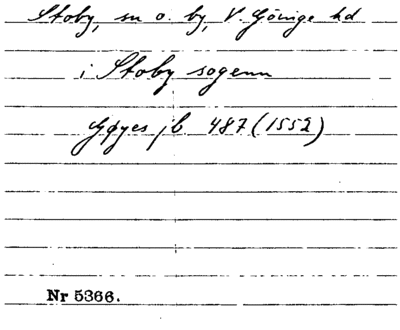 Stoby, sn o. by, V. Göinge hd
i Stoby sogenn
Gøyes jb. 487 (1552)
Nr 5366.